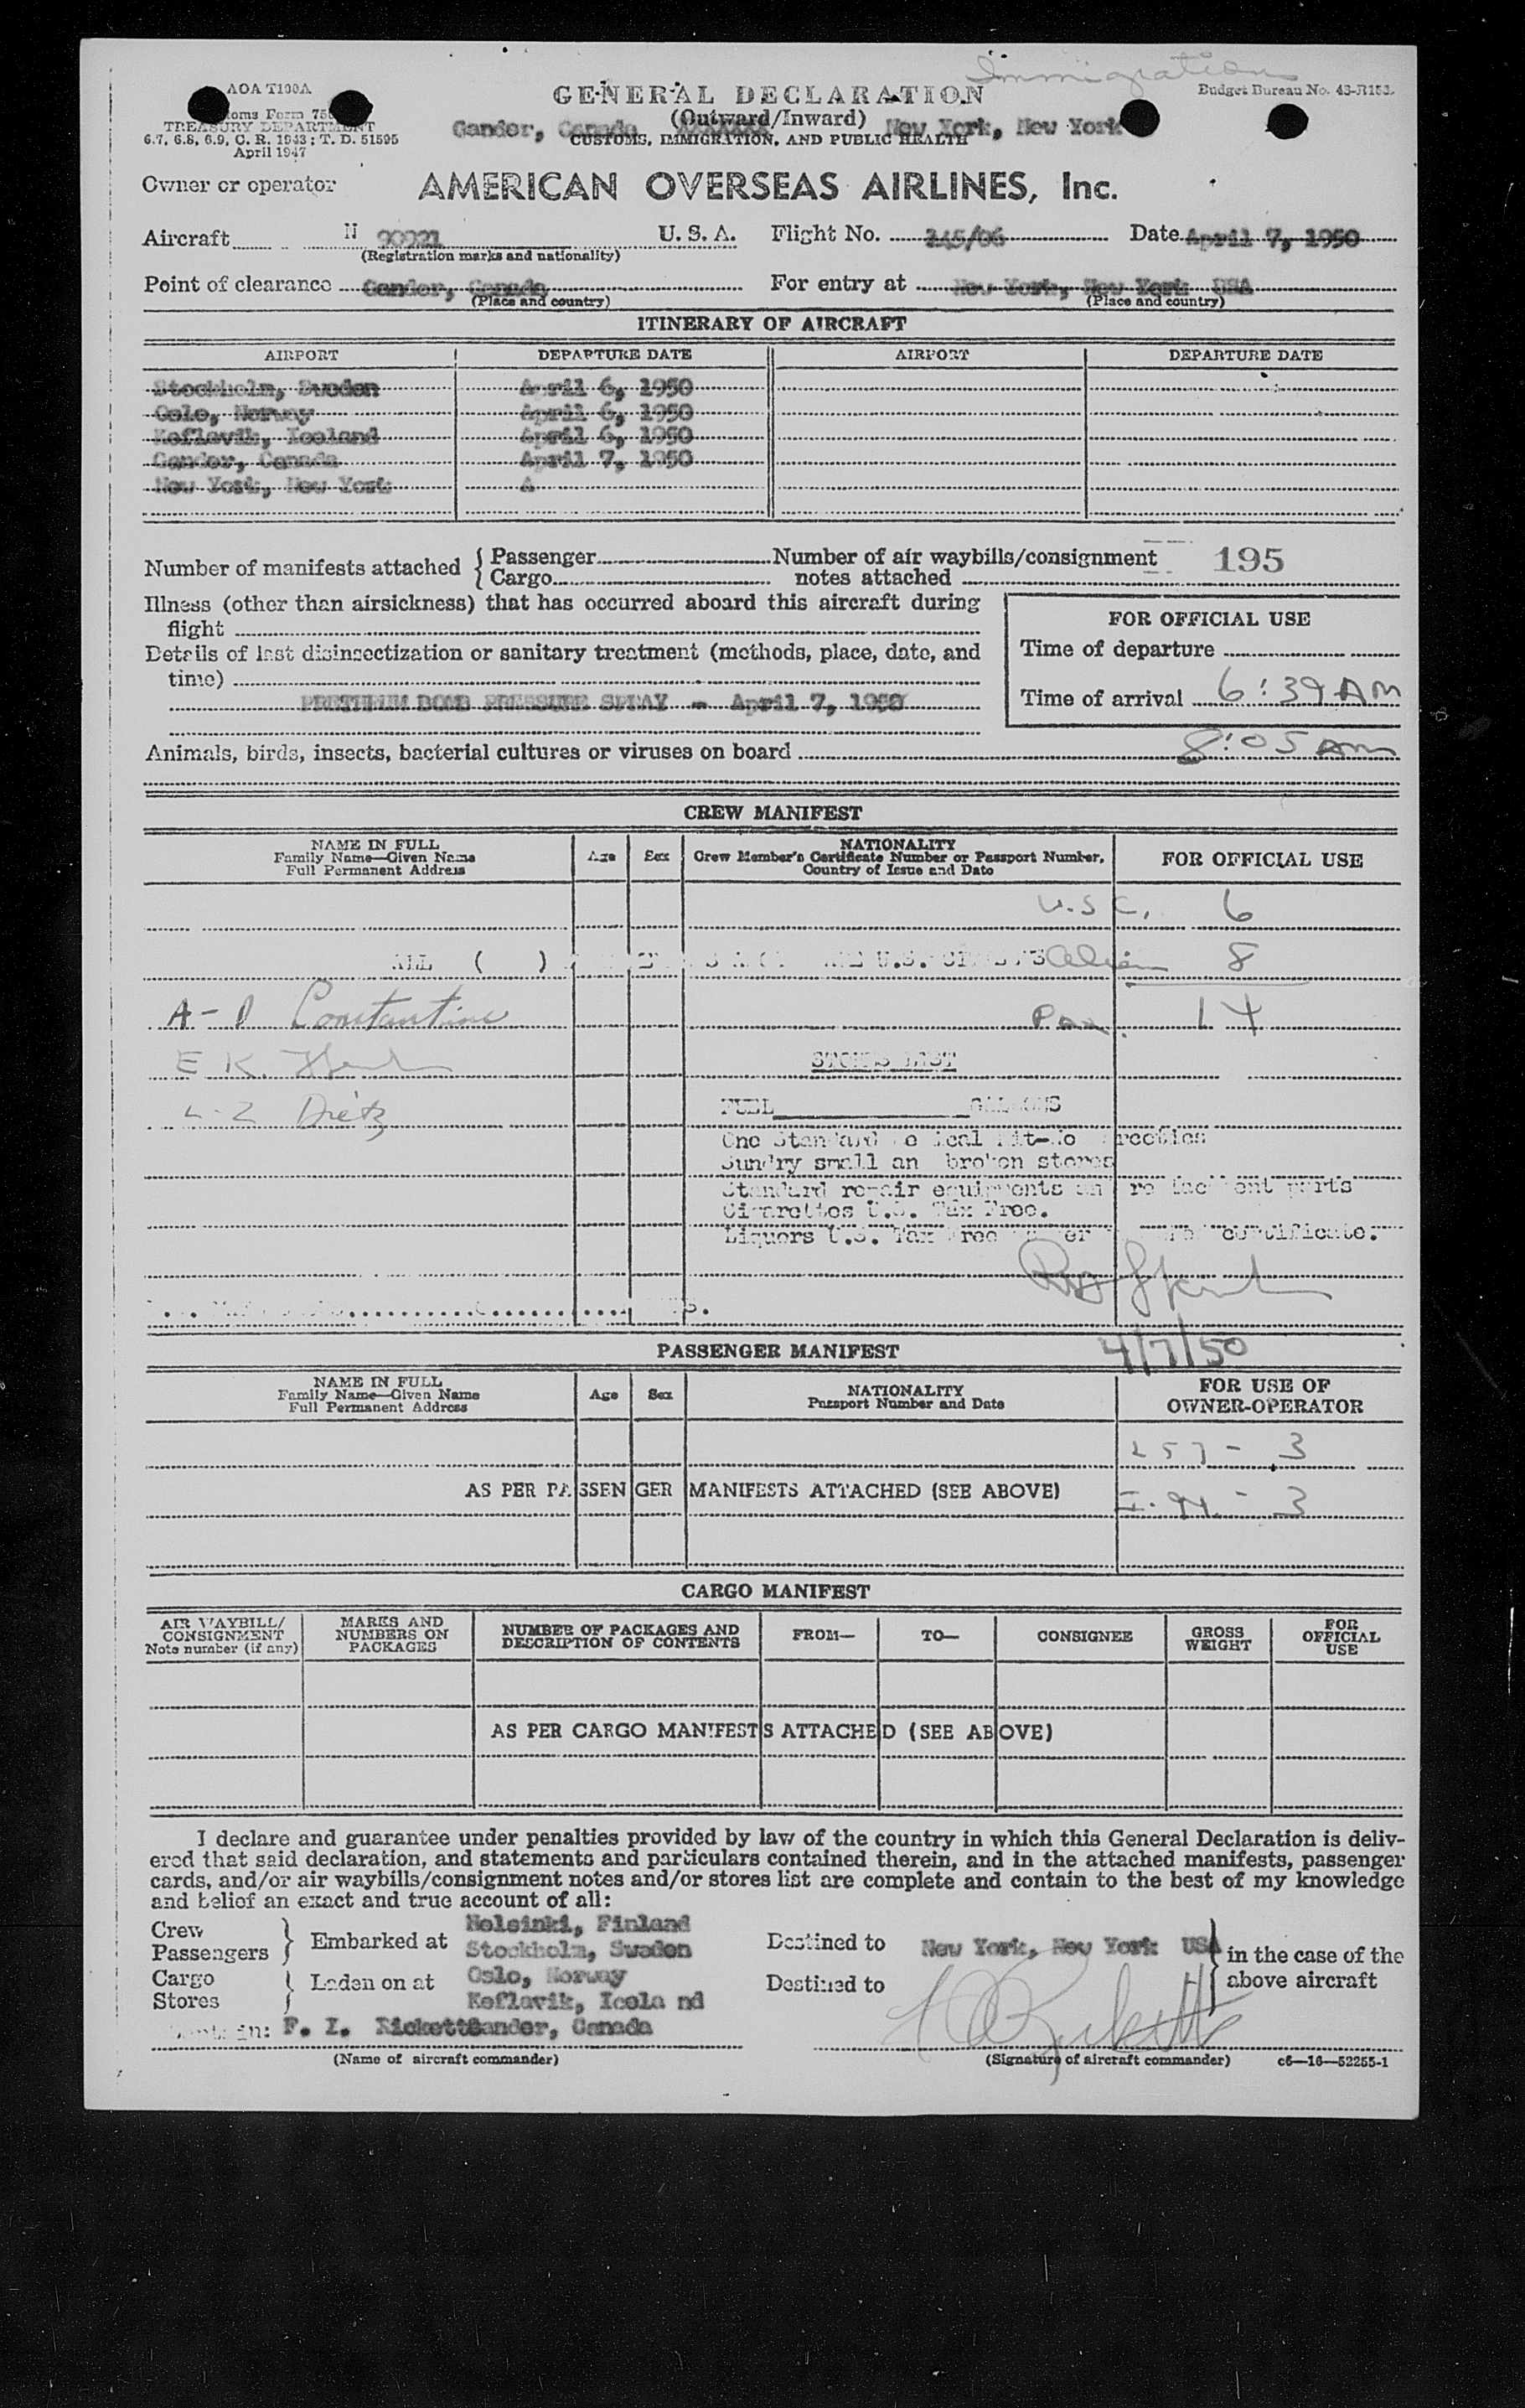 Immigration
AOA T100A
GENERAL DECLARATION
Budget Bureau No. 43-R153.
(Outward/Inward)
TREASURY DEPARTMENT
Gander, Canada New York, New York
6.7, 6.8, 6.9, C. R. 1943; T. D. 51595
CUSTOMS, IMMIGRATION, AND PUBLIC HEALTH
April 1947
Owner or operator AMERICAN OVERSEAS AIRLINES, Inc.
Aircraft N 90921 U. S. A. Flight No. Date April 7, 1950
(Registration marks and nationality)
Point of clearance Gander, Canada For entry at New York, New York USA
(Place and country) (Place and country)
ITINERARY OF AIRCRAFT
AIRPORT DEPARTURE DATE AIRPORT DEPARTURE DATE
Stockholm, Sweden April 6, 1950
Oslo, Norway April 6, 1950
Keflavik, Iceland April 6, 1950
Gander, Canada April 7, 1950
New York, New York A
Number of manifests attached { Passenger Number of air waybills/consignment 195
{ Cargo notes attached
Illness (other than airsickness) that has occurred aboard this aircraft during
flight
FOR OFFICIAL USE
Details of last disinsectization or sanitary treatment (methods, place, date, and
Time of departure
time)
Time of arrival 6:39 AM
BOMB PRESSURE SPRAY - April 7, 1950
Animals, birds, insects, bacterial cultures or viruses on board 8:05 AM
CREW MANIFEST
NAME IN FULL
Family Name—Given Name
Full Permanent Address
Age Sex
NATIONALITY
Crew Member's Certificate Number or Passport Number,
Country of Issue and Date
FOR OFFICIAL USE
U.S.C. 6
ALL ( ) U.S. Alien 8
A-D Constantine Pax. 14
E K.
STORES LIST
L-Z Dietz
FUEL GALLONS
One Standard
Sundry small broken stores
Standard repair equipments parts
Cigarettes U.S. Tax Free.
Liquors U.S. Tax Free certificate.
4/7/50
PASSENGER MANIFEST
NAME IN FULL
Family Name—Given Name
Full Permanent Address
Age Sex
NATIONALITY
Passport Number and Date
FOR USE OF
OWNER-OPERATOR
257 - 3
AS PER PASSENGER MANIFESTS ATTACHED (SEE ABOVE)
I-94 - 3
CARGO MANIFEST
AIR WAYBILL/
CONSIGNMENT
Note number (if any)
MARKS AND
NUMBERS ON
PACKAGES
NUMBER OF PACKAGES AND
DESCRIPTION OF CONTENTS
FROM—
TO—
CONSIGNEE
GROSS
WEIGHT
FOR
OFFICIAL
USE
AS PER CARGO MANIFESTS ATTACHED (SEE ABOVE)
I declare and guarantee under penalties provided by law of the country in which this General Declaration is deliv-
ered that said declaration, and statements and particulars contained therein, and in the attached manifests, passenger
cards, and/or air waybills/consignment notes and/or stores list are complete and contain to the best of my knowledge
and belief an exact and true account of all:
Crew
Passengers } Embarked at Helsinki, Finland
Stockholm, Sweden
Destined to New York, New York USA } in the case of the
above aircraft
Cargo
Stores } Laden on at Oslo, Norway
Keflavik, Icela nd
Destined to
F. I. Ricketts Gander, Canada
(Name of aircraft commander) (Signature of aircraft commander) c6—16—52255-1